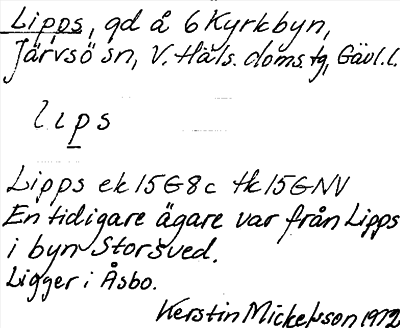 Lipps, gd å 6 Kyrkbyn,
Järvsö sn, V. Häls. doms.tg, Gävl.l.
lips
Lipps ek 15G8c tk 15GNV
En tidigare ägare var från Lipps
i byn Storsved.
Ligger i Åsbo.
Kerstin Mickelsson 1972